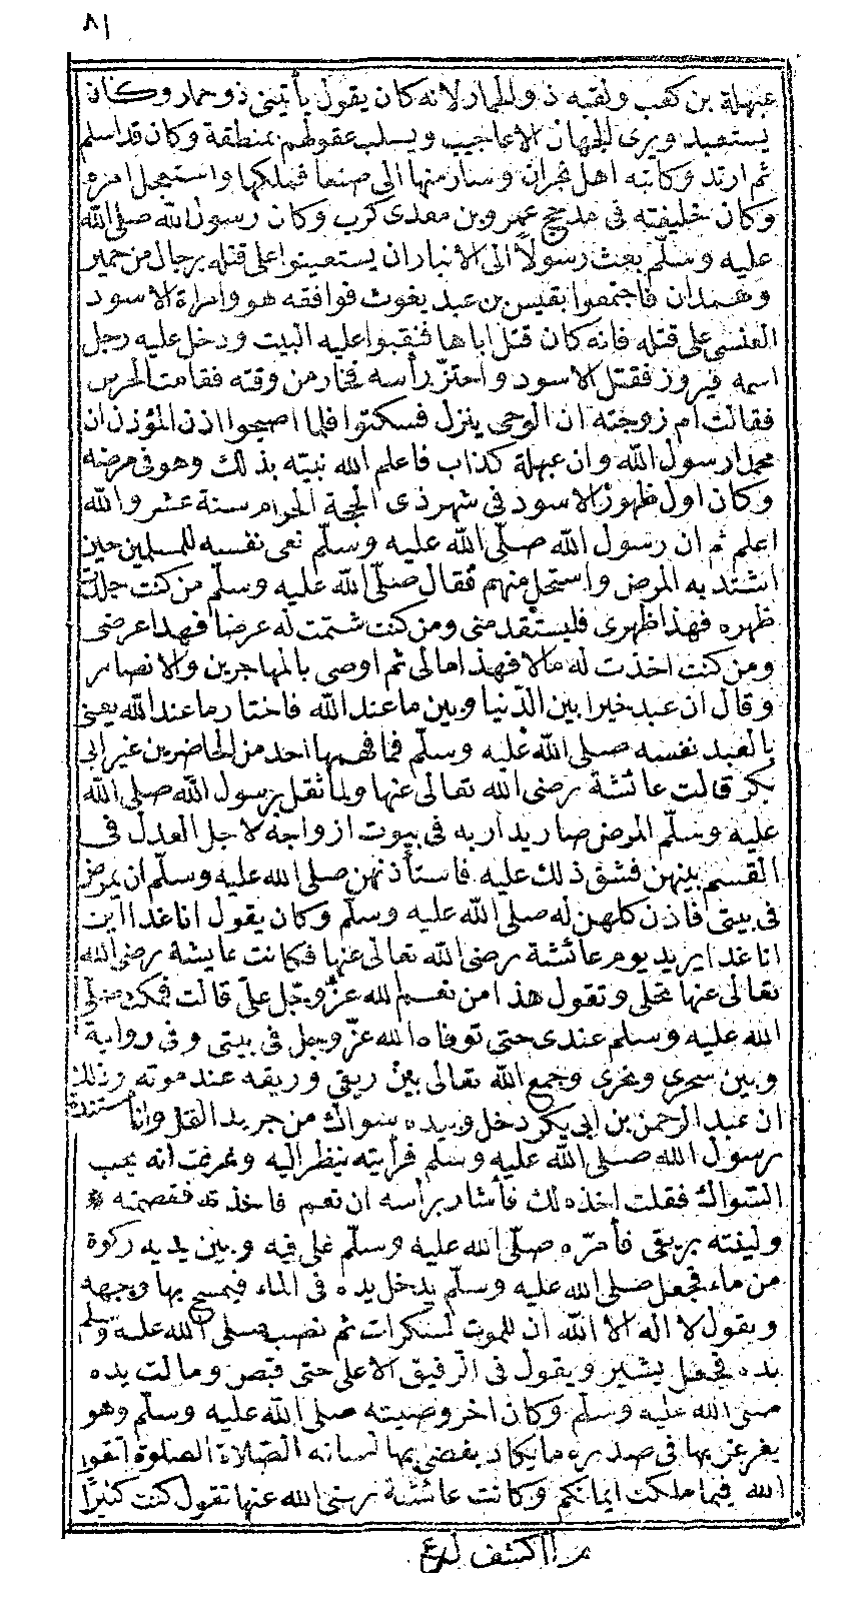 ٨١
عبهلة بن كعب ولقبه ذو الحمار لانه كان يقول يأتيني ذو حمار وكان
يستعبد ويرى الجهال الاعاجيب ويسلب عقولهم بمنطقة وكان قد اسلم
ثم ارتد وكاتبه اهل نجران وسار منها الى صنعا فملكها واستفحل امره
وكان خليفته في مذحج عمرو بن معدى كرب وكان رسول الله صلى الله
عليه وسلّم بعث رسولاً الى الانبار ان يستعينوا على قتله برجال من حمير
وهمدان فاجتمعوا بقيس بن عبد يغوث فوافقه هو وامراة الاسود
العنسى على قتله فانه كان قتل اباها فنقبوا عليه البيت ودخل عليه رجل
اسمه فيروز فقتل الاسود واحتزّ رأسه فخار من وقته فقامت الحرس
فقالت ام زوجته ان الوحى ينزل فسكتوا فلما اصبحوا اذن المؤذن ان
محمدا رسول الله وان عبهلة كذاب فاعلم الله نبيّه بذلك وهو في مرضه
وكان اول ظهور الاسود في شهر ذى الحجة الحرام سنة عشر والله
اعلم ثم ان رسول الله صلّى الله عليه وسلّم نعى نفسه للمسلمين حين
اشتد به المرض واستحل منهم فقال صلّى الله عليه وسلّم من كنت جلدت
ظهره فهذا ظهرى فليستقد منى ومن كنت شتمت له عرضا فهذا عرضى
ومن كنت اخذت له مالا فهذا مالى ثم اوصى بالمهاجرين والانصار
وقال ان عبد خيرا بين الدّنيا وبين ما عند الله فاختار ما عند الله يعنى
بالعبد نفسه صلى الله عليه وسلّم فما فهمها احد من الحاضرين غير ابى
بكر قالت عائشة رضى الله تعالى عنها ولما ثقل برسول الله صلى الله
عليه وسلّم المرض صار يدار به فى بيوت ازواجه لاجل العدل فى
القسم بينهن فشق ذلك عليه فاستأذنهن صلى الله عليه وسلّم ان يمرض
فى بيتى فاذن كلهن له صلى الله عليه وسلّم وكان يقول انا غدا اين
انا غدا يريد يوم عائشة رضى الله تعالى عنها فكانت عايشة رضى الله
تعالى عنها تخلى وتقول هذا من نعم الله عزّ وجّل علىّ قالت فمكث صلى
الله عليه وسلم عندى حتى توفاه الله عزّ وجل فى بيتى وفى رواية
وبين سحرى ونحرى وجمع الله تعالى بين ريقى وريقه عند موته وذلك
ان عبد الرحمن بن ابى بكر دخل وبيده سواك من جريد النخل وانا مستندة
رسول الله صلى الله عليه وسلم فرأيته ينظر اليه وعرفت انه يحب
السّواك فقلت اخذه لك فأشار برأسه ان نعم فاخذته فقصمته *
ولينته بريقى فأمرّه صلّى الله عليه وسلّم على فيه وبين يديه ركوة
من ماء فجعل صلى الله عليه وسلّم يدخل يده فى الماء فيمسح بها وجهه
ويقول لا اله الا الله ان للموت لسكرات ثم نصب صلى الله عليه وسلم
يده فجعل يشير ويقول فى الرفيق الاعلى حتى قبض ومالت يده
صلى الله عليه وسلّم وكان اخر وصيته صلى الله عليه وسلّم وهو
يغرغر بها فى صدره ما يكاد يفضى بها لسانه الصّلاة الصلوة اتقوا
الله فيما ملكت ايمانكم وكانت عائشة رضى الله عنها تقول كنت كثيرًا